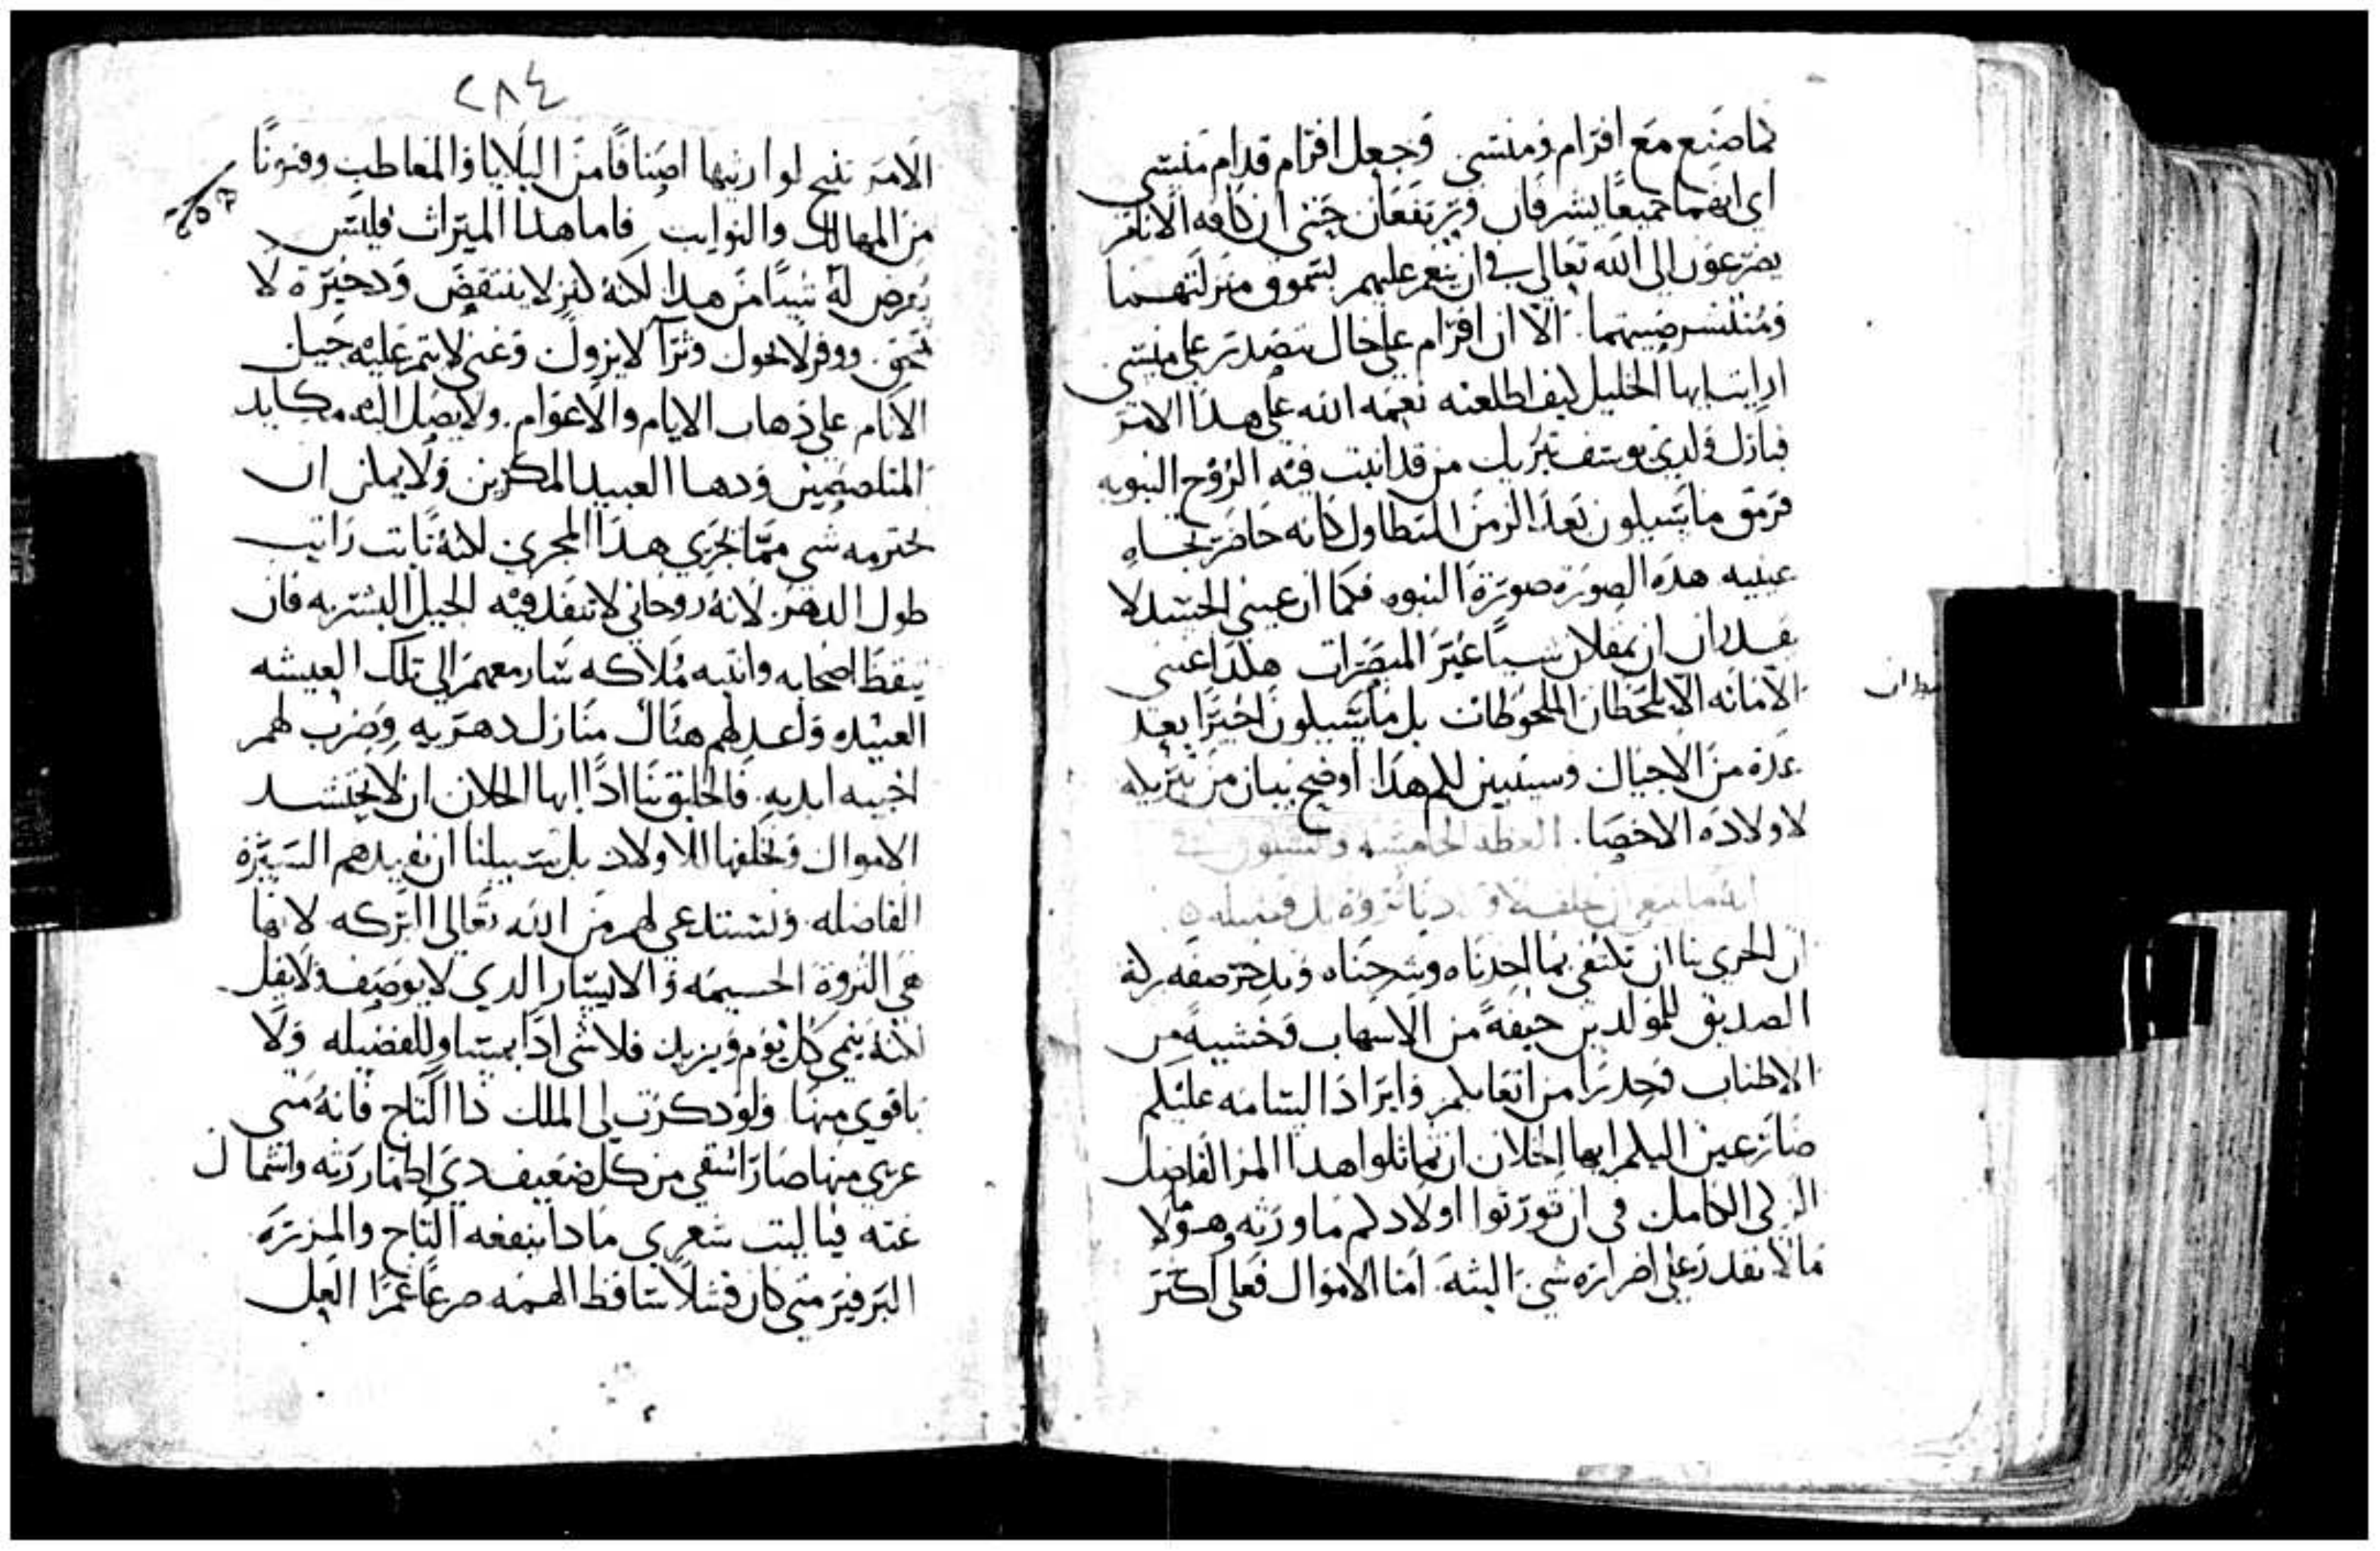 كما صنع مع افرام ومنسى وجعل افرام قدام منسى
اي انهما جميعًا يشرفان ويرتفعان حتى ان كافه الانام
يضرعون الى الله تعالى في ان ينعم عليهم بسمو منزلتهما
ومنتشر صيتهما. الا ان افرام على حال يتصدر على منسى
ارايت ايها الخليل كيف اطلعته نعمه الله على هذا الامر
فبارك ولدي يوسف من قد انبت فيه الروح النبويه
فرمق ما سيكون بعد الزمن المتطاول كانه حاضر تجاه
عينيه هذه الصوره صورة النبوه فكما ان عيني الجسد لا
يقدران ان يمقلان شيا غير المبصرات هكذا عيني
يقدران
الامانه لا تلحظان الملحوظات بل ما سيكون اخيرًا بعد
عدة من الاجيال وسيبين لكم هذا اوضح بيان من تبريكه
لاولاده الاخصا. العظه الخامسه والستون في
انه ما ينبغي ان نخلف لاولادنا ثروة بل فضيله ۞
ان الحري بنا ان نكتفي بما اخذناه وشرحناه صفه بركة
الصديق للمولدين خيفةً من الاسهاب وخشيةً من
الاطناب وحذرًا من اتعابكم وايراد السامه عليكم
ضارعين اليكم ايها الخلان ان تماثلوا هذا المر الفاضل
الزكي الكامل في ان تورثوا اولادكم ما ورثه هولا
ما لا يقدر على اضراره شي البته. اما الاموال فعلى اكثر
٢٨٤
الامر تنيح لوارثيها اصنافًا من البلايا والمعاطب وفنونًا
من المهالك والنوايب فاما هذا الميراث فليس
يعرض له شيئا من هذا لكنه كنز لا ينتقض وذخيرة لا
تمحق. ووفر لا يحول وثرآ لا يزول وغنى لا يتم عليه حيل
الانام على ذهاب الايام والاعوام. ولا يصل اليه مكايد
المتلصصين ودها العبيد الماكرين ولا يمكن ان
يخترمه شي مما يجري هذا المجرى لكنه ثابت راتب
طول الدهر. لانه روحاني لا تنفذ فيه الحيل البشريه فان
تيقظ اصحابه وانتبه ملاكه سار معهم الى تلك العيشه
العتيده واعد لهم هناك منازل دهريه وضرب لهم
اخبيه ابديه. فالخليق بنا اذًا ايها الخلان ان لا نحتشد
الاموال ونخلفها للاولاد بل سبيلنا ان نفيدهم السيرة
الفاضله. ونستدعي لهم من الله تعالى البركه لانها
هي الثروة الجسيمه والايسار الذي لا يوصف ولا يقل
لكنه ينمي كل يوم ويزيد فلا شي اذا يساوي للفضيله ولا
باقوي منها ولو ذكرت لي الملك ذا التاج فانه متى
عري منها صار اشقى من كل ضعيف ذي اطمار رثه واسمال
غثه فيا ليت شعري ماذا ينفعه التاج والميزرة
البرفير متى كان فشلًا ساقط الهمه ضرعًا غمرًا